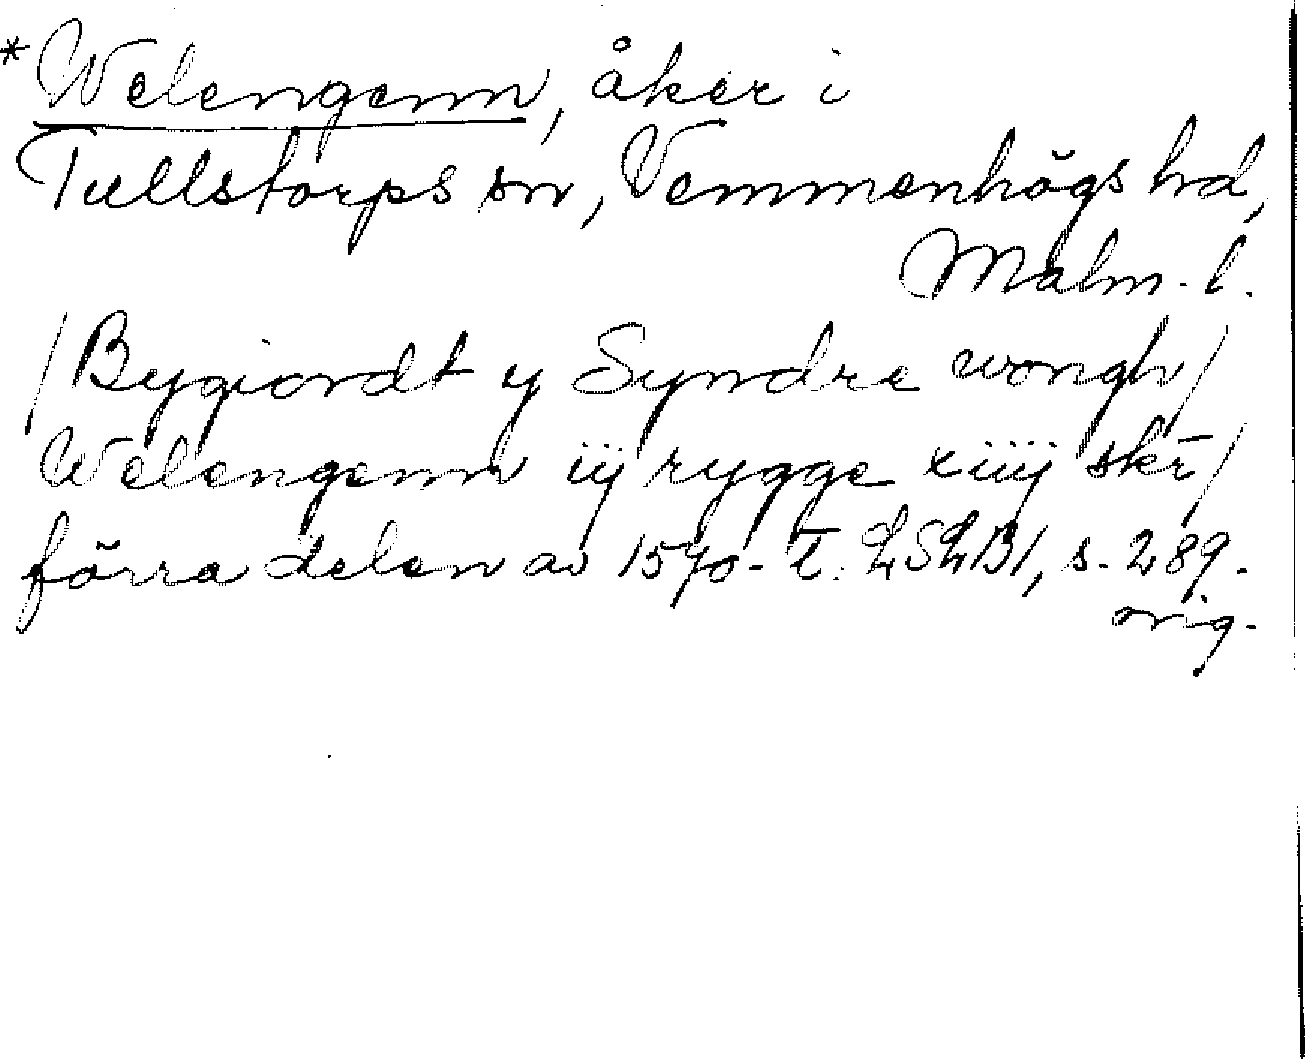 *Welengenn, åker i
Tullstorps sn, Vemmenhögs hd,
Malm. l.
/Bygiordt y Syndre wongh/
Welengenn iij rygge xiiij skr̄/
förra delen av 1570-t. LSLB1, s. 289.
orig.